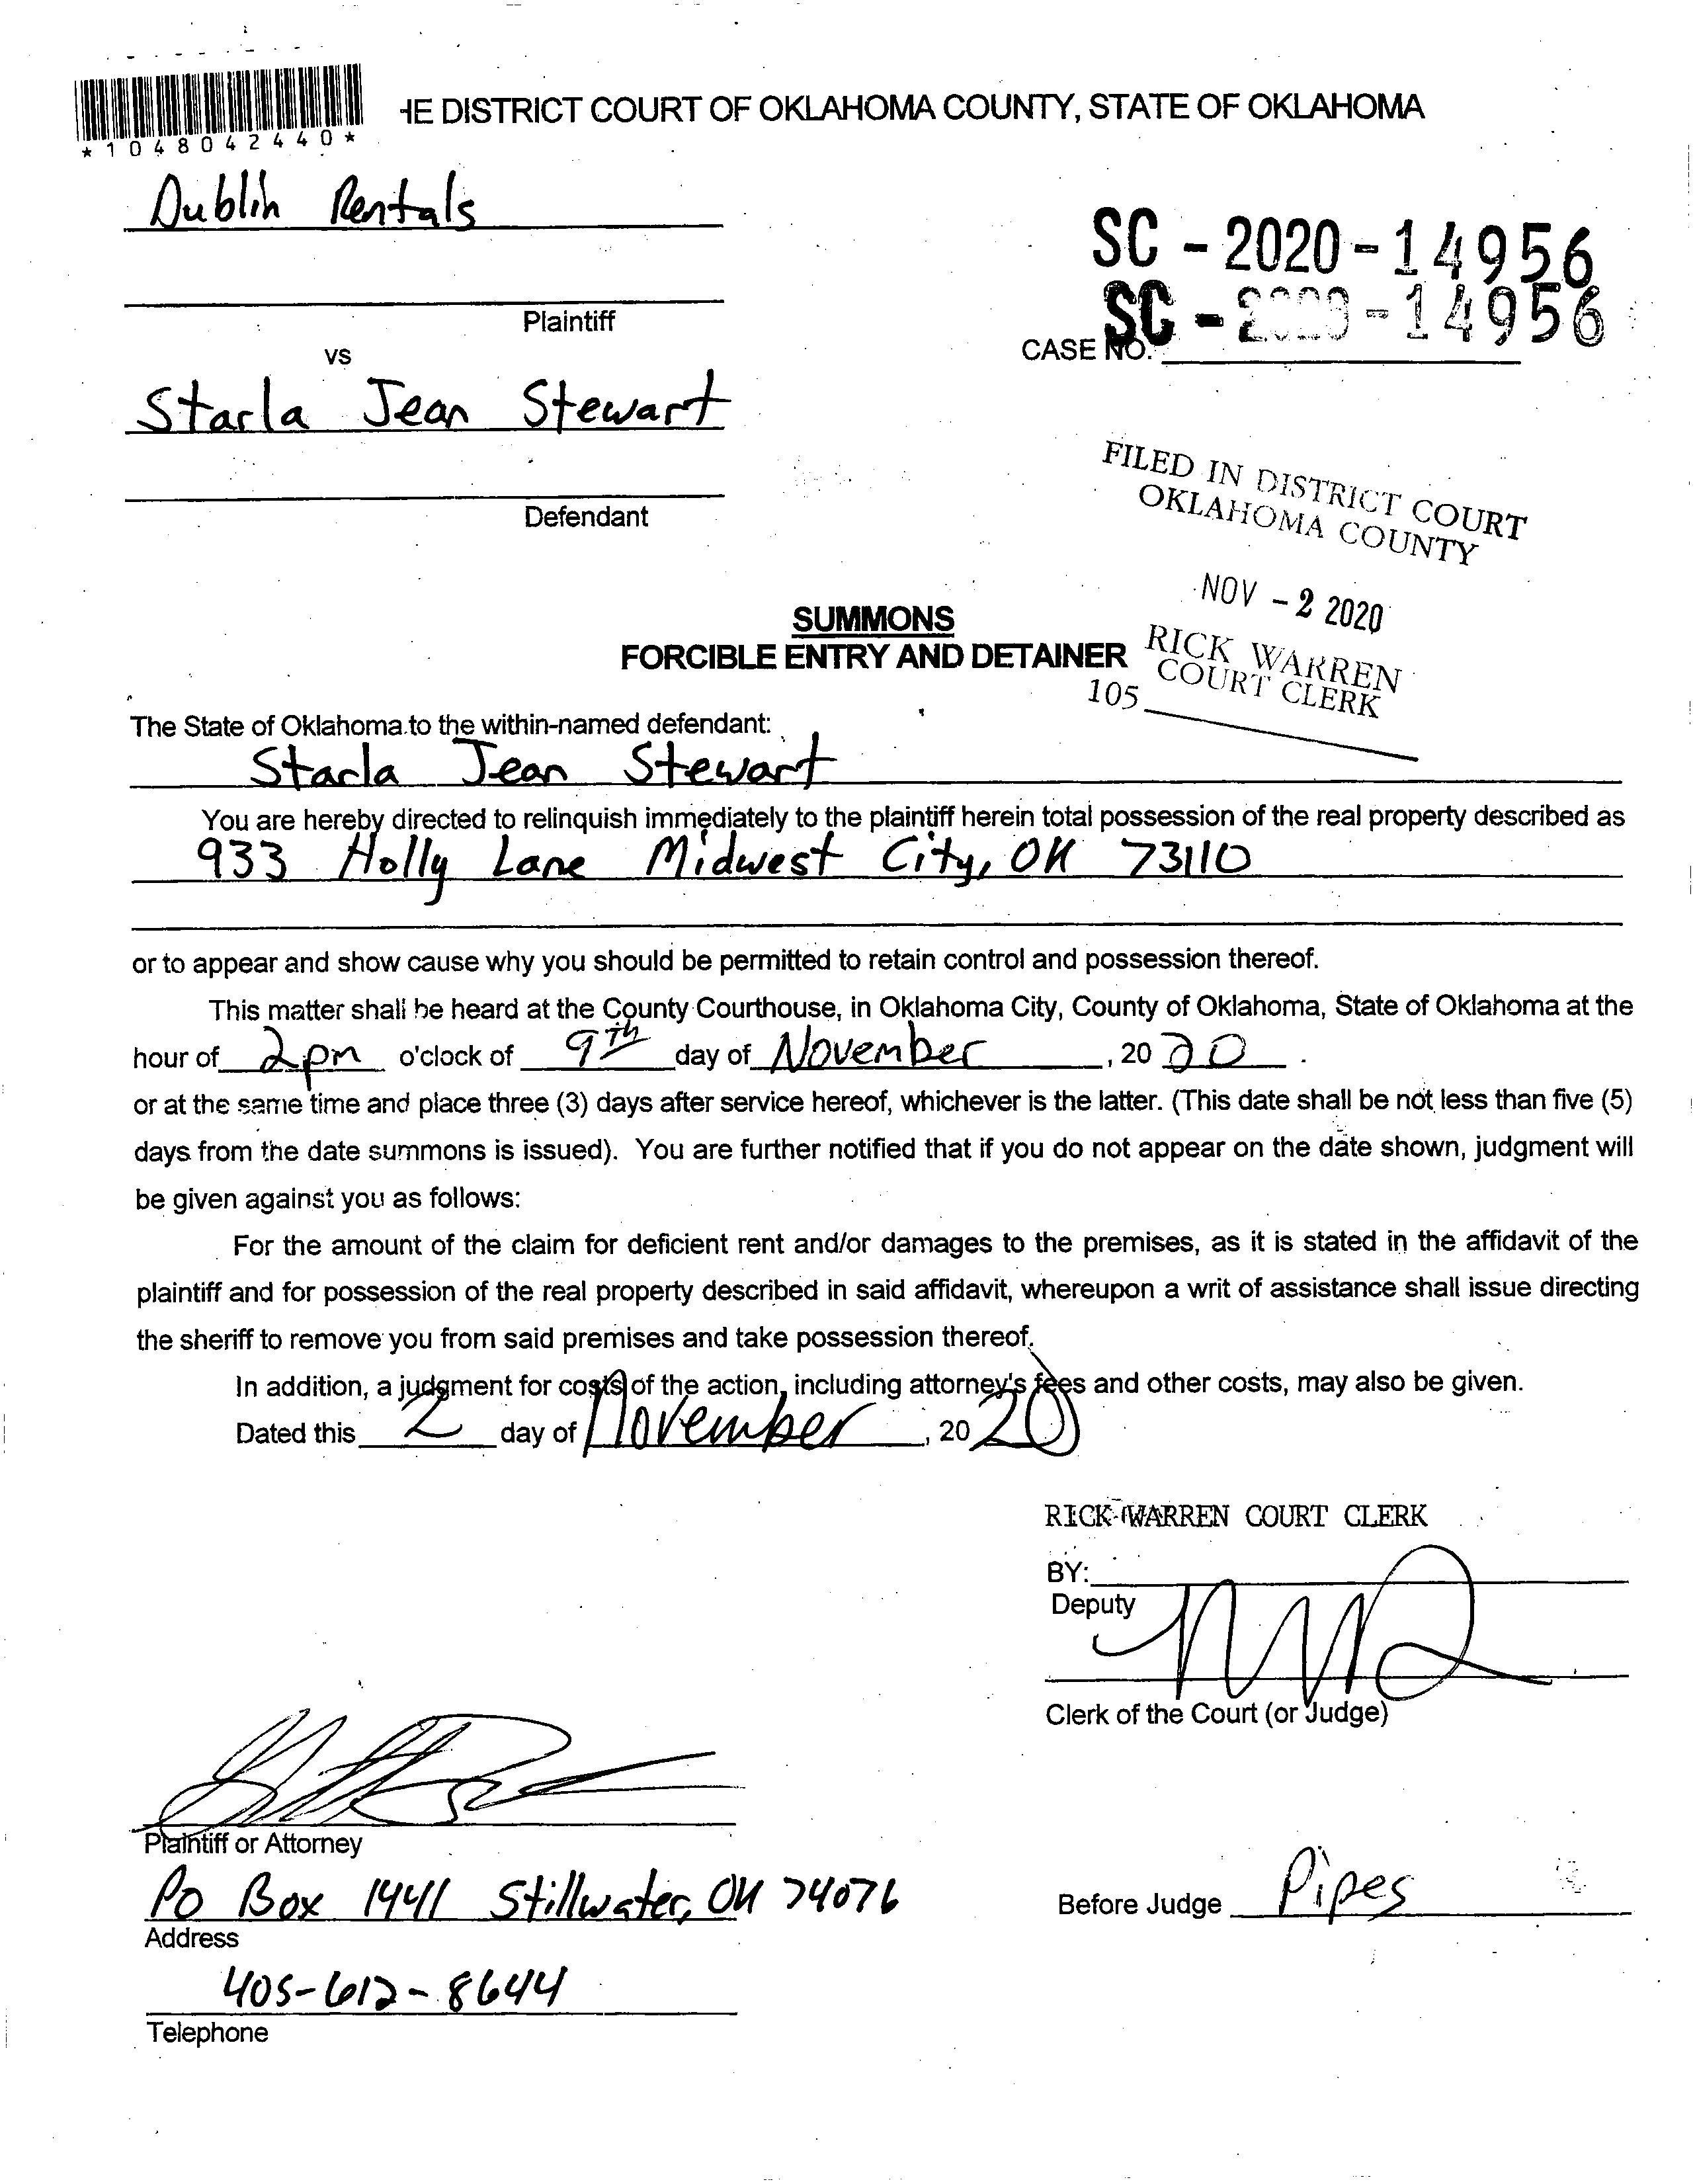 HE DISTRICT COURT OF OKLAHOMA COUNTY, STATE OF OKLAHOMA
*1048042440*
Dublin Rentals
SC - 2020 - 14956
SC - - 14956
Plaintiff
CASE NO.
vs
Starla Jean Stewart
Defendant
FILED IN DISTRICT COURT
OKLAHOMA COUNTY
NOV - 2 2020
RICK WARREN
COURT CLERK
105
SUMMONS
FORCIBLE ENTRY AND DETAINER
The State of Oklahoma to the within-named defendant:
Starla Jean Stewart
You are hereby directed to relinquish immediately to the plaintiff herein total possession of the real property described as
933 Holly Lane Midwest City, OK 73110
or to appear and show cause why you should be permitted to retain control and possession thereof.
This matter shall be heard at the County Courthouse, in Oklahoma City, County of Oklahoma, State of Oklahoma at the
hour of 2pm o'clock of 9th day of November, 2020.
or at the same time and place three (3) days after service hereof, whichever is the latter. (This date shall be not less than five (5)
days from the date summons is issued). You are further notified that if you do not appear on the date shown, judgment will
be given against you as follows:
For the amount of the claim for deficient rent and/or damages to the premises, as it is stated in the affidavit of the
plaintiff and for possession of the real property described in said affidavit, whereupon a writ of assistance shall issue directing
the sheriff to remove you from said premises and take possession thereof.
In addition, a judgment for costs of the action, including attorney's fees and other costs, may also be given.
Dated this 2 day of November, 2020
RICK WARREN COURT CLERK
BY:
Deputy
Clerk of the Court (or Judge)
Plaintiff or Attorney
PO Box 1441 Stillwater, OK 74076
Address
Before Judge Pipes
405-612-8644
Telephone